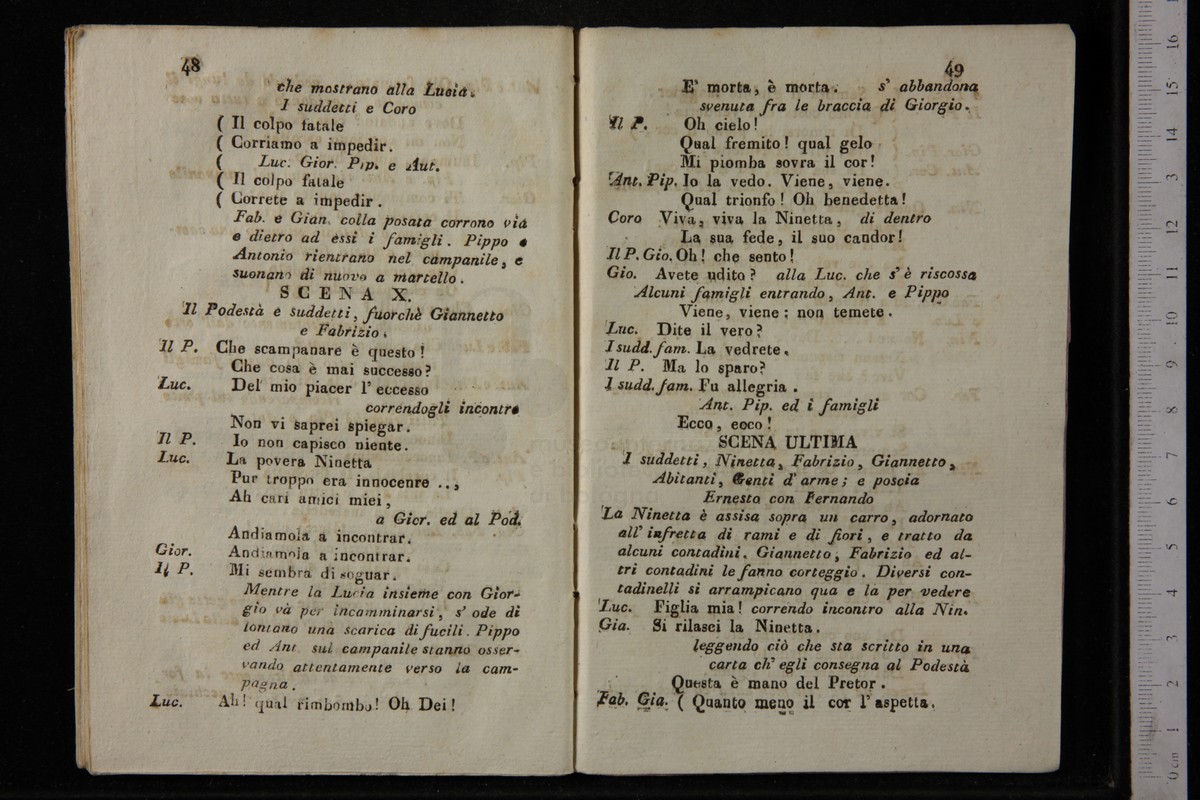 48
che mostrano alla Lucia.
I suddetti e Coro
( Il colpo fatale
( Corriamo a impedir.
( Luc. Gior. Pip. e Aut.
( Il colpo fatale
( Correte a impedir.
Fab. e Gian. colla posata corrono via
e dietro ad essi i famigli. Pippo e
Antonio rientrano nel campanile, e
suonano di nuovo a martello.
SCENA X.
Il Podestà e suddetti, fuorchè Giannetto
e Fabrizio.
Il P. Che scampanare è questo!
Che cosa è mai successo?
Luc. Del mio piacer l' eccesso
correndogli incontro
Non vi saprei spiegar.
Il P. Io non capisco niente.
Luc. La povera Ninetta
Pur troppo era innocenre ..,
Ah cari amici miei,
a Gior. ed al Pod.
Andiamola a incontrar.
Gior. Andiamola a incontrar.
Il P. Mi sembra di sognar.
Mentre la Lucia insieme con Gior-
gio và per incamminarsi, s' ode di
lontano una scarica di fucili. Pippo
ed Ant sul campanile stanno osser-
vando attentamente verso la cam-
pagna.
Luc. Ah! qual rimbombo! Oh Dei!
49
E' morta, è morta. s' abbandona
svenuta fra le braccia di Giorgio.
Il P. Oh cielo!
Qual fremito! qual gelo
Mi piomba sovra il cor!
Ant. Pip. Io la vedo. Viene, viene.
Qual trionfo! Oh benedetta!
Coro Viva, viva la Ninetta, di dentro
La sua fede, il suo candor!
Il P. Gio. Oh! che sento!
Gio. Avete udito? alla Luc. che s' è riscossa
Alcuni famigli entrando, Ant. e Pippo
Viene, viene; non temete.
Luc. Dite il vero?
I sudd. fam. La vedrete.
Il P. Ma lo sparo?
I sudd. fam. Fu allegria.
Ant. Pip. ed i famigli
Ecco, ecco!
SCENA ULTIMA
I suddetti, Ninetta, Fabrizio, Giannetto,
Abitanti, Genti d' arme; e poscia
Ernesto con Fernando
La Ninetta è assisa sopra un carro, adornato
all' infretta di rami e di fiori, e tratto da
alcuni contadini. Giannetto, Fabrizio ed al-
tri contadini le fanno corteggio. Diversi con-
tadinelli si arrampicano qua e la per vedere
Luc. Figlia mia! correndo incontro alla Nin.
Gia. Si rilasci la Ninetta.
leggendo ciò che sta scritto in una
carta ch' egli consegna al Podestà
Questa è mano del Pretor.
Fab. Gia. ( Quanto meno il cor l' aspetta,